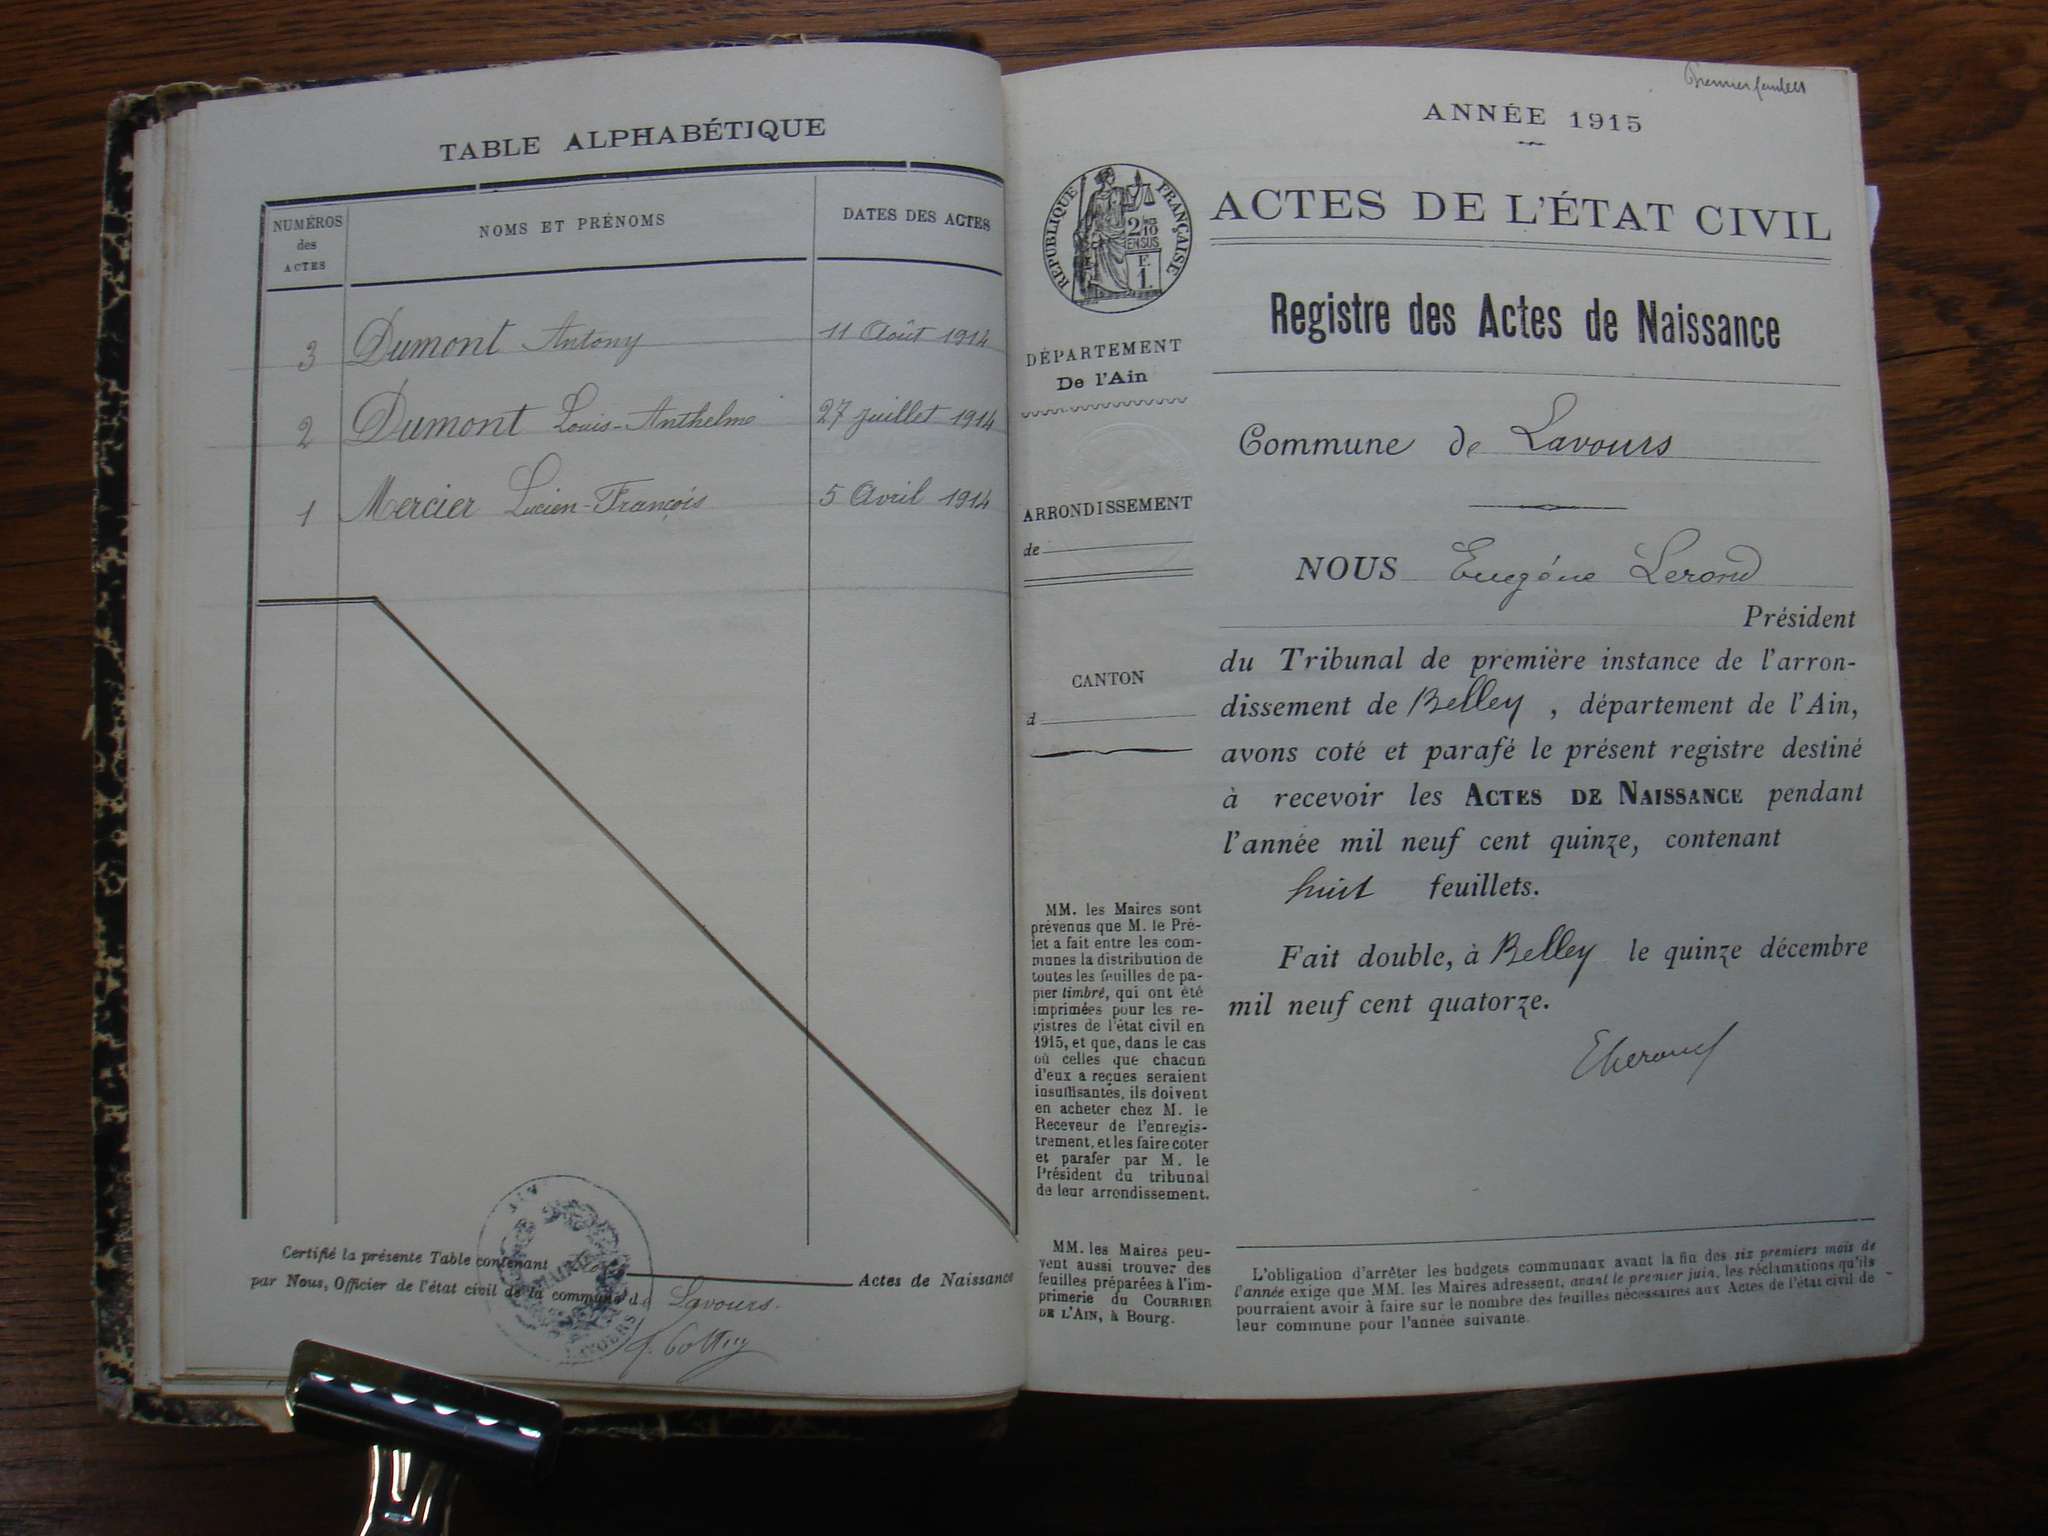 TABLE ALPHABÉTIQUE
NUMÉROS des ACTES
NOMS ET PRÉNOMS
DATES DES ACTES
3 Dumont Antony 11 Août 1914
2 Dumont Louis-Anthelme 27 juillet 1914
1 Mercier Lucien-François 5 Avril 1914
Certifié la présente Table contenant Actes de Naissance
par Nous, Officier de l'état civil de la commune de Lavours.
MAIRIE
Premier feuillet
ANNÉE 1915
RÉPUBLIQUE FRANÇAISE
2/10
EN SUS
F.
1.
ACTES DE L'ÉTAT CIVIL
Registre des Actes de Naissance
DÉPARTEMENT
De l'Ain
ARRONDISSEMENT
de
CANTON
d
Commune de Lavours
NOUS Eugène
Président
du Tribunal de première instance de l'arron-
dissement de Belley, département de l'Ain,
avons coté et parafé le présent registre destiné
à recevoir les ACTES DE NAISSANCE pendant
l'année mil neuf cent quinze, contenant
huit feuillets.
Fait double, à Belley le quinze décembre
mil neuf cent quatorze.
MM. les Maires sont
prévenus que M. le Pré-
fet a fait entre les com-
munes la distribution de
toutes les feuilles de pa-
pier timbré, qui ont été
imprimées pour les re-
gistres de l'état civil en
1915, et que, dans le cas
où celles que chacun
d'eux a reçues seraient
insuffisantes, ils doivent
en acheter chez M. le
Receveur de l'enregis-
trement, et les faire coter
et parafer par M. le
Président du tribunal
de leur arrondissement.
MM. les Maires peu-
vent aussi trouver des
feuilles préparées à l'im-
primerie du COURRIER
DE L'AIN, à Bourg.
L'obligation d'arrêter les budgets communaux avant la fin des six premiers mois de
l'année exige que MM. les Maires adressent, avant le premier juin, les réclamations qu'ils
pourraient avoir à faire sur le nombre des feuilles nécessaires aux Actes de l'état civil de
leur commune pour l'année suivante.